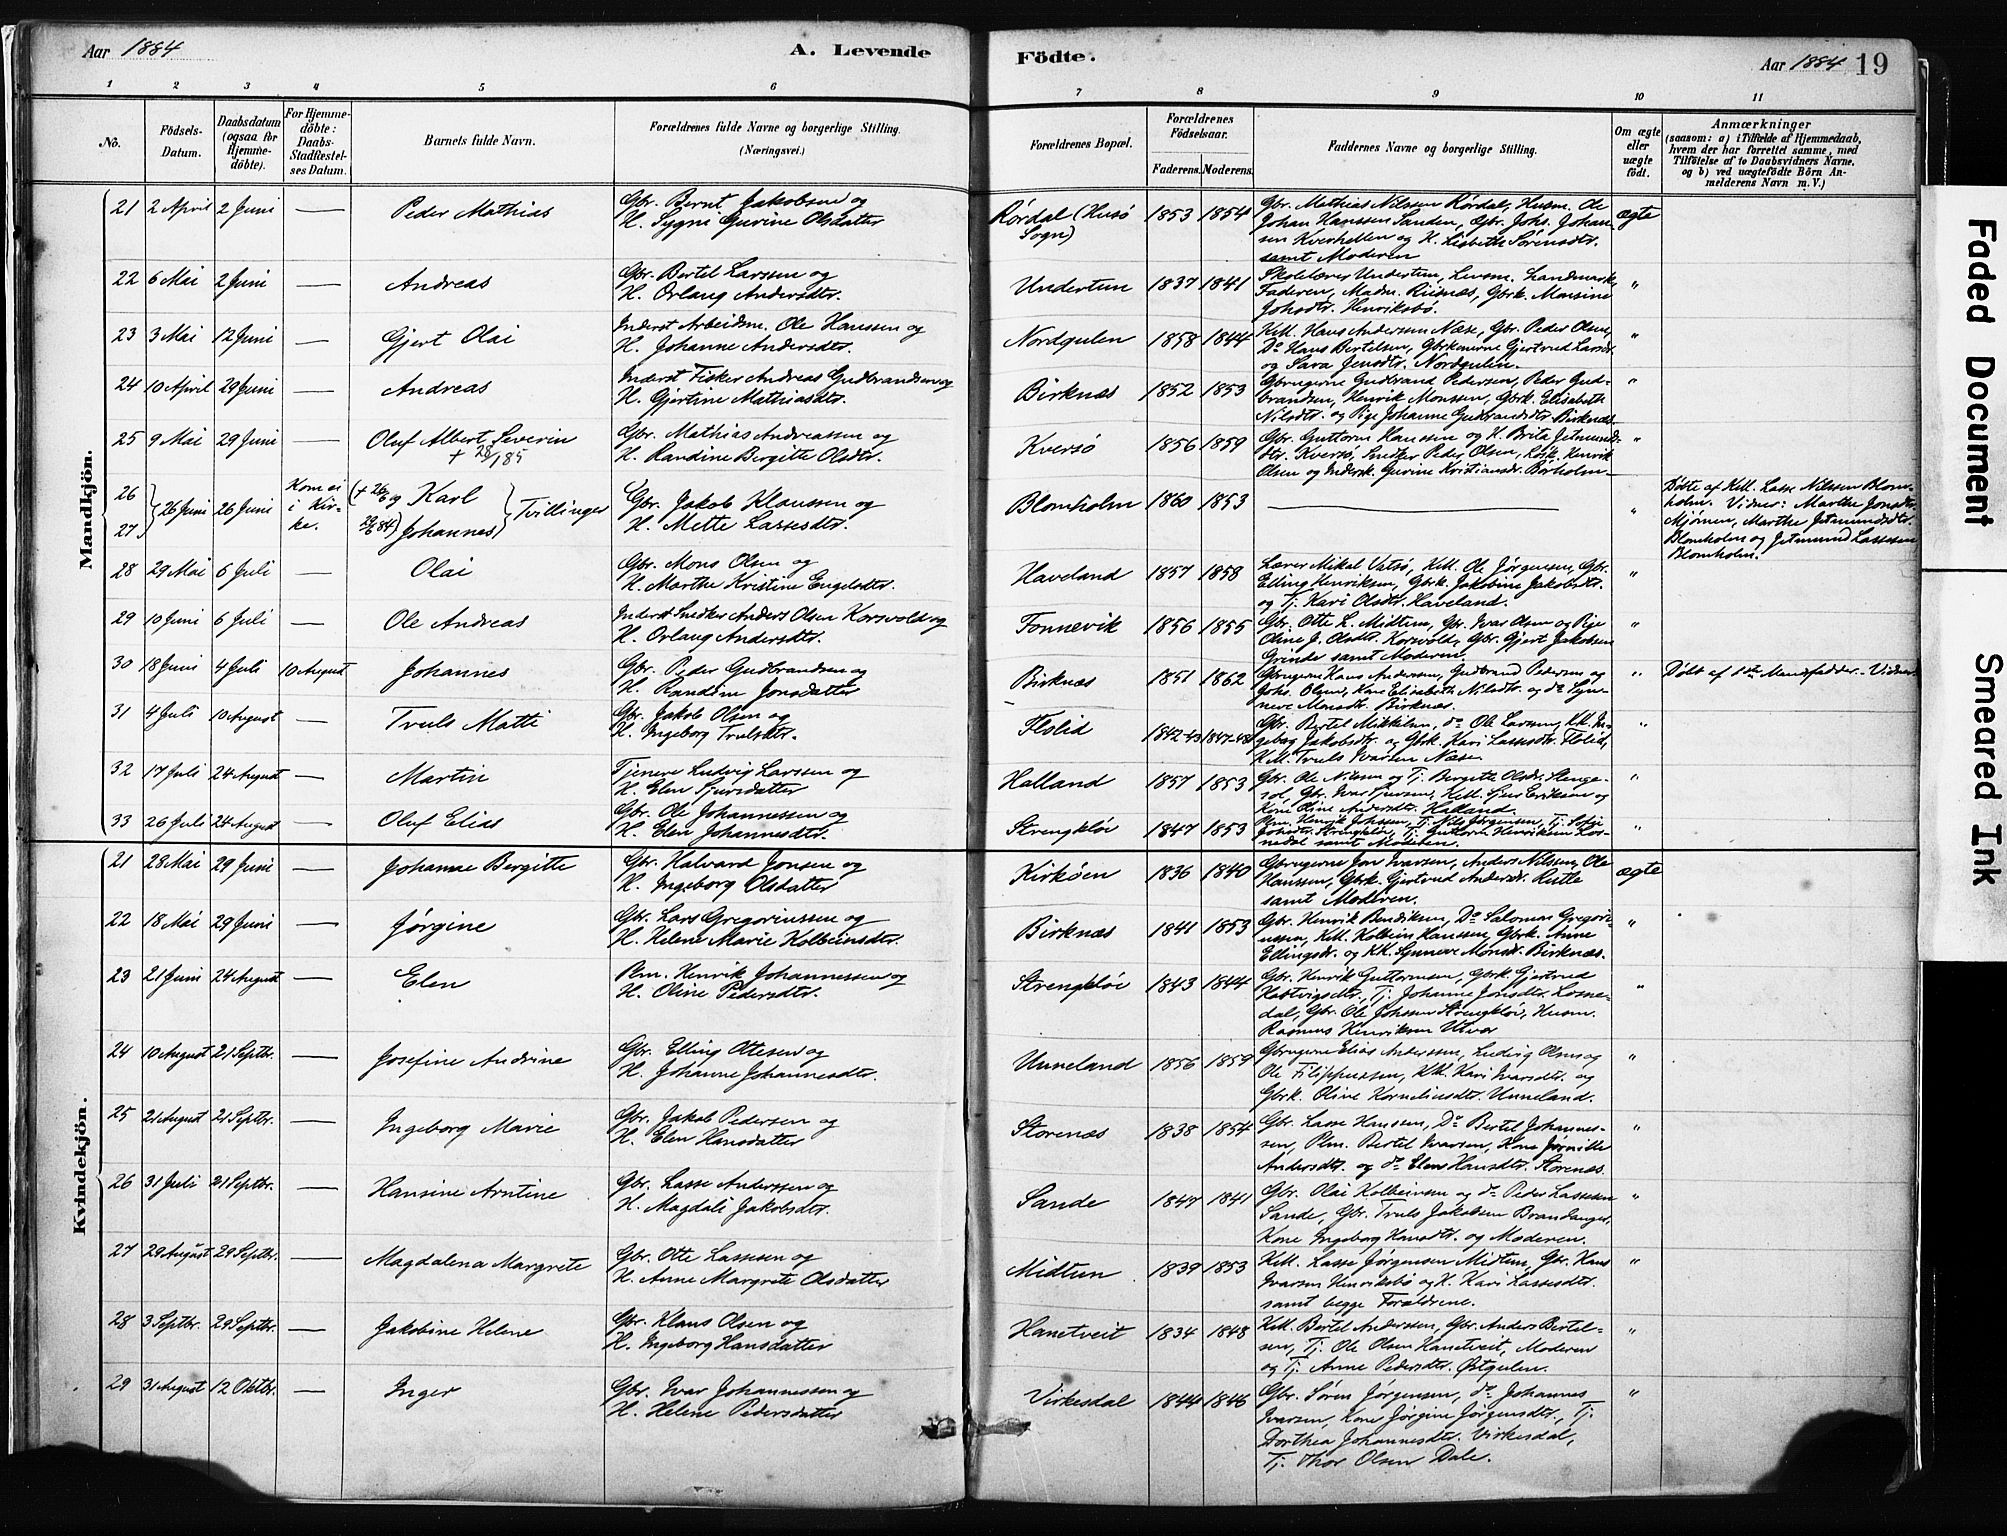 Aar 1884
A. Levende
Födte.
Aar 1884
19
1 2 3 4 5 6 7 8 9 10 11
No.
Födsels-Datum.
Daabsdatum (ogsaa for Hjemmedöbte).
For Hjemmedöbte: Daabs-Stadfæstelses Datum.
Barnets fulde Navn.
Forældrenes fulde Navne og borgerlige Stilling.
(Næringsvei.)
Forældrenes Bopæl.
Forældrenes Födselsaar.
Faderens. Moderens.
Faddernes Navne og borgerlige Stilling.
Om ægte eller uægte födt.
Anmærkninger
(saasom: a) i Tilfælde af Hjemmedaab,
hvem der har forrettet samme, med
Tilföielse af to Daabsvidners Navne.
og b) ved uægtefödte Börn An-
melderens Navn m. V.)
Mandkjön.
21 2 April 2 Juni — Peder Mathias
Gbr. Bernt Jakobsen og
H. Sygni Gurine Olsdatter
Rørdal (Husø Sogn) 1853 1854
Gbr. Mathias Nilssen Rørdal, Husm. Ole
Johan Hanssen Sanden, Gbr. Johs. Johan-
sen Kverhellen og K. Lisbeth Sørensdtr.
samt Moderen
ægte
22 6 Mai 2 Juni — Andreas
Gbr. Bertel Larssen og
H. Orlaug Andersdtr.
Undertun 1837 1841
Skolelærer Undertun, Lensm. Landmark,
Faderen, Madm. Risnæs, Gbrk. Monsine
Johsdtr. Henriksbø.
"
23 3 Mai 12 Juni — Gjert Olai
Inderst Arbeidsm. Ole Hanssen og
H. Johanne Andersdtr.
Nordgulen 1858 1844
Kell. Hans Andersen Næse, Gbr. Peder Olsen,
Do Hans Bertelsen, Gbrkonerne Gjertrud Larsdr.
og Sara Jensdtr. Nordgulen.
"
24 10 April 29 Juni — Andreas
Inderst Fisker Andreas Gudbrandsen og
H. Gjertine Mathiasdtr.
Birknæs 1852 1853
Gbrugerne Gudbrand Pedersen, Peder Gud-
brandsen, Henrik Monssen, Gbrk. Elisabeth
Nilsdtr. og Pige Johanne Gudbrandsdtr. Birknæs.
"
25 9 Mai 29 Juni — Oluf Albert Severin
+ 28/1 85
Gbr. Mathias Andreassen og
H. Randine Bergitte Olsdtr.
Kversø 1856 1859
Gbr. Guttorm Hanssen og K. Brita Jetmunds-
dtr. Kversø, Snedker Peder Olsen, Henrik
Olsen og Indersk. Gurine Kristiansdr. Birkholm.
"
26 27 26 Juni 26 Juni Kom ei i Kirke.
Karl
Johannes
Tvillinger
Gbr. Jakob Klaussen og
H. Mette Lassesdtr.
Blomholm 1860 1853 — "
Døbte af Kell. Lasse Nilssen Blom-
holm. Vidner: Marthe Jonsdtr.
Mjømen, Marthe Jetmundsdtr.
Blomholm og Jetmund Lassesen
Blomholm.
28 29 Mai 6 Juli — Olai
Gbr. Mons Olsen og
H. Marthe Kristine Engelsdtr.
Haveland 1857 1858
Lærer Mikal Vatsø, Kell. Ole Jørgensen, Gbr.
Elling Henriksen, Gbrk. Jakobine Jakobsdtr.
og Tj. Kari Olsdtr. Haveland.
"
29 10 Juni 6 Juli — Ole Andreas
Inderst Snedker Anders Olsen Korsvold og
H. Orlaug Andersdtr.
Fonnevik 1856 1855
Gbr. Otte L. Midtun, Gbr. Ivar Olsen og Pige
Oline J. Olsdtr. Korsvold, Gbr. Gjert Jakobsen
Grinde samt Moderen
"
30 18 Juni 4 Juli 10 August Johannes
Gbr. Peder Gudbrandsen og
H. Randine Jonsdatter
Birknæs 1851 1862
Gbrugerne Hans Andersen, Gudbrand Pedersen og
Johs. Olsen, Kone Elisabeth Nilsdtr. og do Syn-
neve Monsdtr. Birknæs.
"
Døbt af 1ste Mandsfadder. Vidner
31 4 Juli 10 August — Truls Matti
Gbr. Jakob Olsen og
H. Ingeborg Trulsdtr.
Flolid 1842-43 1847-48
Gbr. Bertel Mikkelsen, do Ole Larsen, KK. In-
geborg Jakobsdtr. og Gbrk. Kari Lassesdtr. Flolid,
K.M. Truls Ivarsen Næse
"
32 17 Juli 24 August — Martin
Tjenere Ludvig Larssen og
H. Elen Sjursdatter
Halland 1857 1853
Gbr. Ole Nilssen og Tj. Bergitte Olsdtr. Stenge-
sol, Gbr. Ivar Sjursen, Kell. Sjur Eriksen og
Kone Oline Andersdtr. Halland
"
33 26 Juli 24 August — Oluf Elias
Gbr. Ole Johannessen og
H. Elen Johannesdtr.
Strengkløi 1847 1853
Plm. Henrik Johssen, Tj. Nils Jørgensen, Tj. Sofie
Johsdtr. Strengkløi, Tj. Guttorm Henriksen Los-
nedal samt Moderen.
"
Kvindekjön.
21 28 Mai 29 Juni — Johanne Bergitte
Gbr. Halvard Jonsen og
H. Ingeborg Olsdatter
Kirkøen 1836 1840
Gbrugerne Jon Ivarsen, Anders Nilssen, Ole
Hanssen, Gbrk. Gjertrud Andersdr. Rutle
samt Moderen.
ægte
22 18 Mai 29 Juni — Jørgine
Gbr. Lars Gregoriussen og
H. Helene Marie Kolbeinsdtr.
Birknæs 1841 1853
Gbr. Henrik Bendiksen, Do Salomon Gregori-
ussen, Kell. Kolbein Hanssen, Gbrk. Anne
Ellingsdr. og KK. Synneve Monsdr. Birknæs.
"
23 21 Juni 24 August — Elen
Plm. Henrik Johannessen og
H. Oline Pedersdtr.
Strengkløi 1843 1844
Gbr. Henrik Guttormsen, Gbrk. Gjertrud
Hartvigsdtr., Tj. Johanne Jonsdtr. Losne-
dal, Gbr. Ole Johssen Strengkløi, Husm.
Rasmus Henriksen Utvær
"
24 10 August 21 Septbr. — Josefine Andrine
Gbr. Elling Ottesen og
H. Johanne Johannesdtr.
Unneland 1856 1859
Gbrugerne Elias Anderssen, Ludvig Olsen og
Ole Filippussen, KK. Kari Ivarsdtr. og
Gbrk. Oline Korneliusdtr. Unneland.
"
25 21 August 21 Septbr. — Ingeborg Marie
Gbr. Jakob Pedersen og
H. Elen Hansdatter
Storenæs 1838 1854
Gbr. Lasse Hanssen, Do Bertel Johannes-
sen, Plm. Bertel Ivarsen, Kone Jørnille
Andersdtr. og do Elen Hansdtr. Storenæs.
"
26 31 Juli 21 Septbr. — Hansine Arntine
Gbr. Lasse Anderssen og
H. Magdali Jakobsdtr.
Sande 1847 1841
Gbr. Olai Kolbeinsen og do Peder Lassesen
Sande, Gbr. Truls Jakobsen Brandanger,
Kone Ingeborg Hansdtr. og Moderen.
"
27 29 August 29 Septbr. — Magdalena Margrete
Gbr. Otte Lassesen og
H. Anne Margrete Olsdatter
Midtun 1839 1853
Kell. Lasse Jørgensen Midtun, Gbr. Hans
Ivarsen Henriksbø og K. Kari Lassesdtr.
samt begge Forældrene.
"
28 3 Septbr. 29 Septbr. — Jakobine Helene
Gbr. Klaus Olsen og
H. Ingeborg Hansdatter
Hanetveit 1834 1848
Kell. Bertel Anderssen, Gbr. Anders Bertel-
sen, Tj. Ole Olsen Hanetveit, Moderen
og Tj. Anne Pedersdtr. Østgulen.
"
29 31 August 12 Oktbr. — Inger
Gbr. Ivar Johannessen og
H. Helene Pedersdatter
Virkesdal 1844 1846
Gbr. Søren Jørgensen, do Johannes
Ivarsen, Kone Jørgine Jørgensdtr., Tj.
Dorthea Johannesdtr. Virkesdal,
Tj. Thor Olsen Dale.
"
Faded Document
Smeared Ink